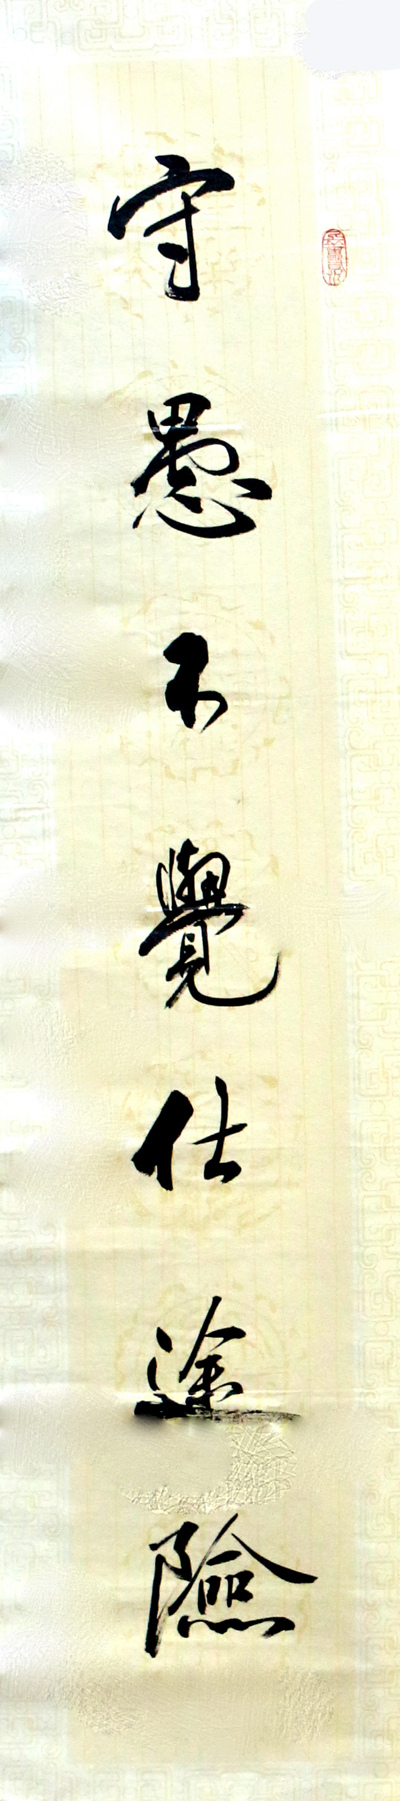 守愚不覺仕途險